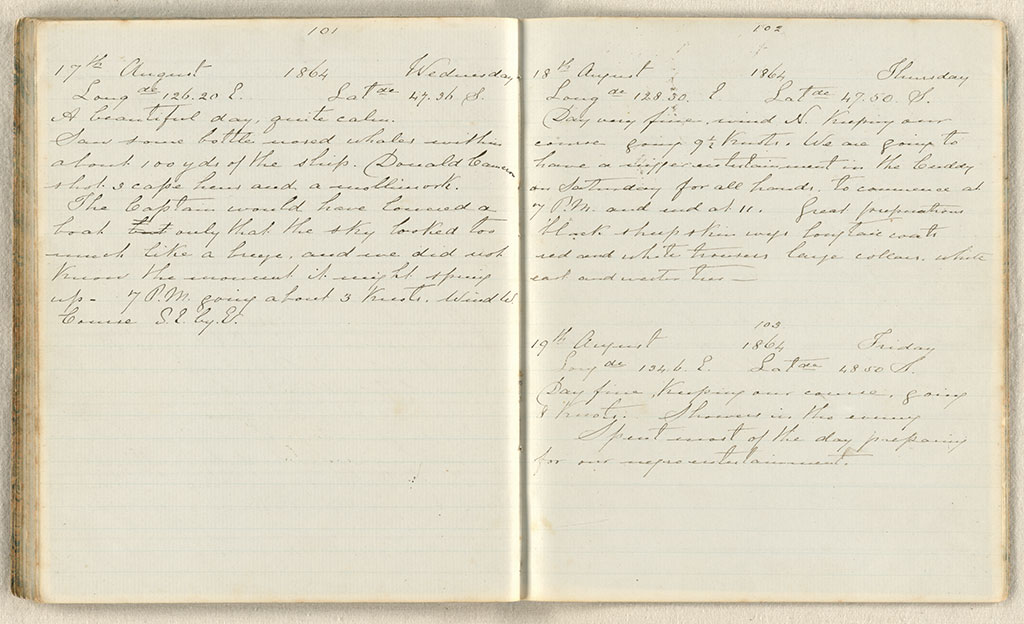 101
17th August 1864 Wednesday
Longde 126.20 E. Latde 47.36 S.
A beautiful day, quite calm.
Saw some bottle nosed whales within
about 100 yds of the ship. Donald Cameron
shot 3 cape hens and a mollimork.
The Captain would have lowered a
boat that only that the sky looked too
much like a breeze, and we did not
know the moment it might spring
up - 7 P.M. going about 3 knots. Wind W
Course S.E. by E.
102
18th August 1864 Thursday
Longde 128.30. E Latde 47.50 S.
Day very fine, wind N. Keeping our
course going 9½ knots. We are going to
have a nigger entertainment in the Cuddy
on Saturday for all hands. to commence at
7 P.M. and end at 11. Great preparations
black sheep skin wigs long tail coats
red and white trousers large collars. white
and
103
19th August 1864 Friday
Longde 134.6. E. Latde 48.50 S.
Day fine, Keeping our course, going
8 knots. Showers in the evening
Spent most of the day preparing
for our negro entertainment.